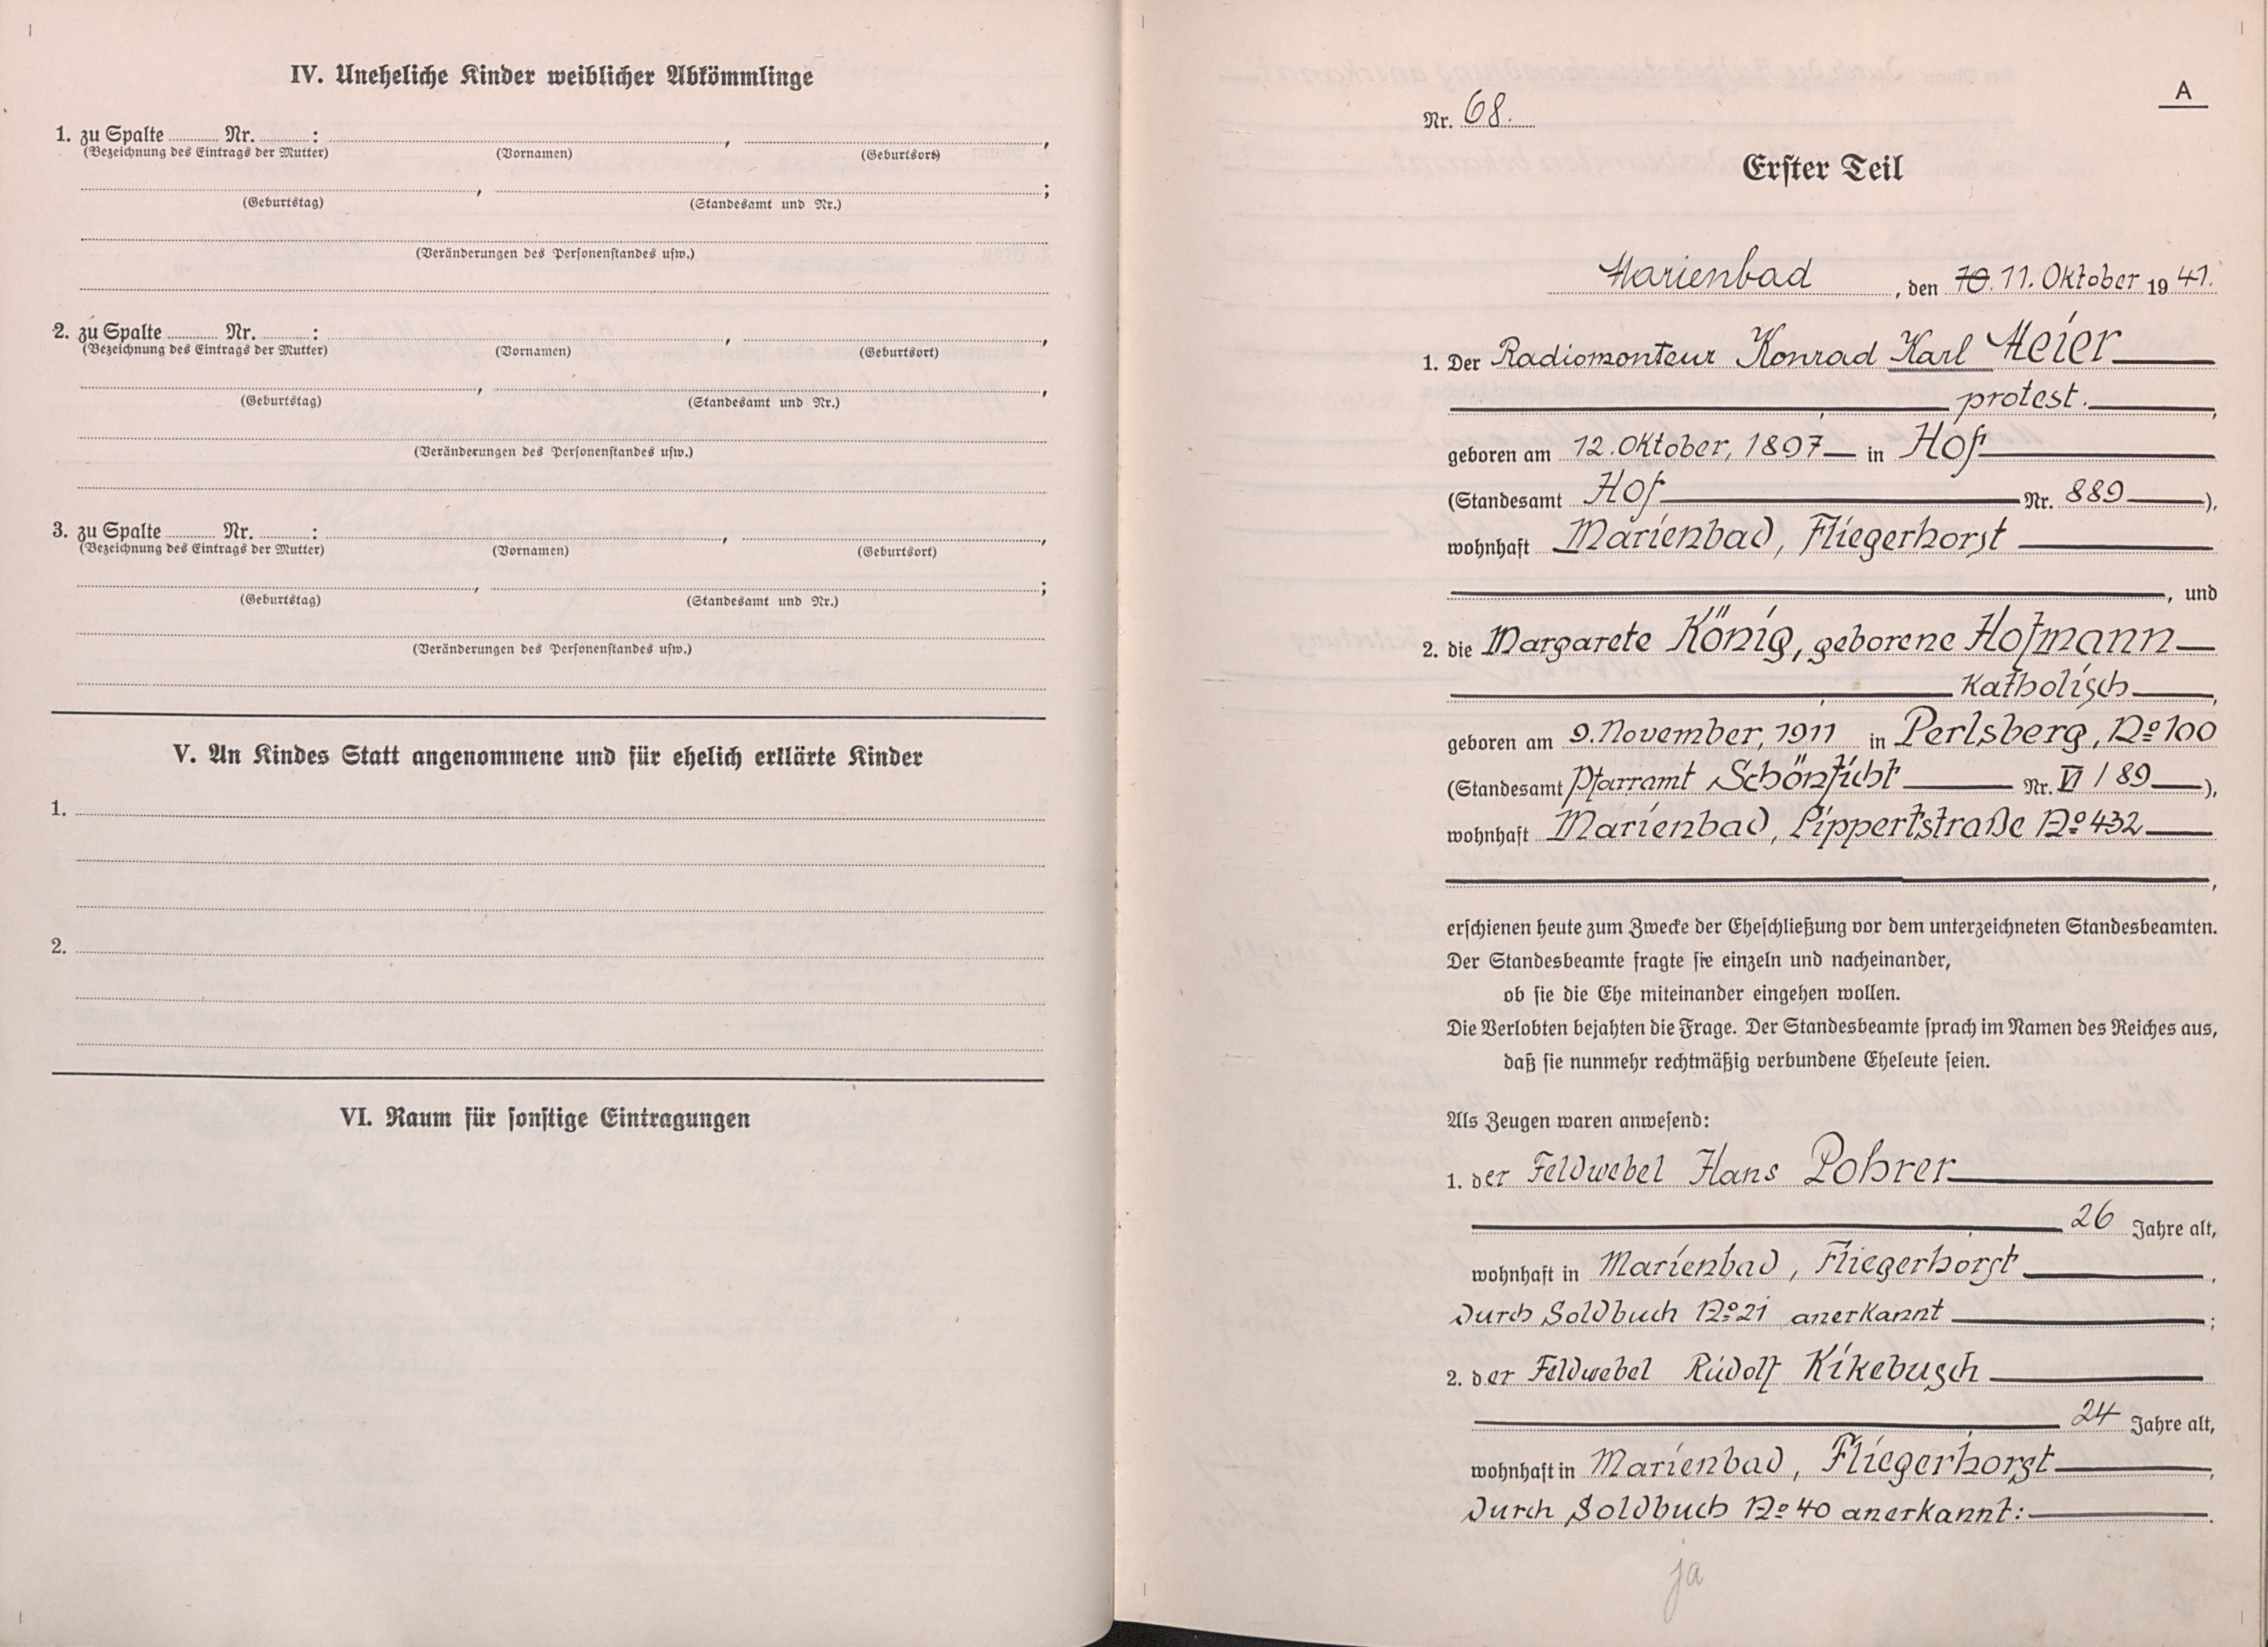 IV. Uneheliche Kinder weiblicher Abkömmlinge
1. zu Spalte ........ Nr. ........ : ........ , ........ ,
(Bezeichnung des Eintrags der Mutter) (Vornamen) (Geburtsort)
........ , ........ ;
(Geburtstag) (Standesamt und Nr.)
(Veränderungen des Personenstandes usw.)
2. zu Spalte ........ Nr. ........ : ........ , ........ ,
(Bezeichnung des Eintrags der Mutter) (Vornamen) (Geburtsort)
........ , ........ ,
(Geburtstag) (Standesamt und Nr.)
(Veränderungen des Personenstandes usw.)
3. zu Spalte ........ Nr. ........ : ........ , ........ ,
(Bezeichnung des Eintrags der Mutter) (Vornamen) (Geburtsort)
........ , ........ ;
(Geburtstag) (Standesamt und Nr.)
(Veränderungen des Personenstandes usw.)
V. An Kindes Statt angenommene und für ehelich erklärte Kinder
1.
2.
VI. Raum für sonstige Eintragungen
A
Nr. 68.
Erster Teil
Marienbad , den 10. 11. Oktober 19 41.
1. Der Radiomonteur Konrad Karl Meier
protest. ,
geboren am 12. Oktober, 1897 in Hof
(Standesamt Hof Nr. 889 ),
wohnhaft Marienbad, Fliegerhorst
, und
2. die Margarete König, geborene Hofmann
Katholisch ,
geboren am 9. November, 1911 in Perlsberg, No 100
(Standesamt Pfarramt Schönficht Nr. VI / 89 ),
wohnhaft Marienbad, Lippertstraße No 432
,
erschienen heute zum Zwecke der Eheschließung vor dem unterzeichneten Standesbeamten.
Der Standesbeamte fragte sie einzeln und nacheinander,
ob sie die Ehe miteinander eingehen wollen.
Die Verlobten bejahten die Frage. Der Standesbeamte sprach im Namen des Reiches aus,
daß sie nunmehr rechtmäßig verbundene Eheleute seien.
Als Zeugen waren anwesend:
1. der Feldwebel Hans Pohrer
26 Jahre alt,
wohnhaft in Marienbad, Fliegerhorst ,
durch Soldbuch No 21 anerkannt ;
2. der Feldwebel Rudolf Kikebusch
24 Jahre alt,
wohnhaft in Marienbad, Fliegerhorst ,
durch Soldbuch No 40 anerkannt: .
ja